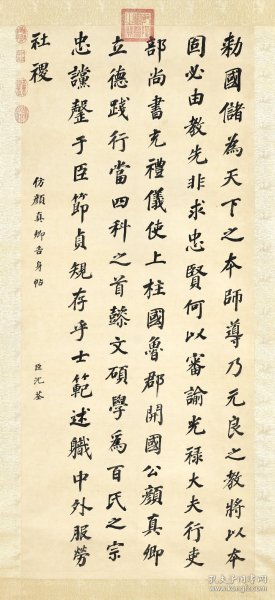 勅國儲為天下之本師導乃元良之教將以本
固必由教先非求忠賢何以審諭光祿大夫行吏
部尚書充禮儀使上柱國魯郡開國公顏真卿
立德踐行當四科之首懿文碩學為百氏之宗
忠讜罄于臣節貞規存乎士範述職中外服勞
社稷
仿顏真卿告身帖
臣沈荃
孔夫子旧书网